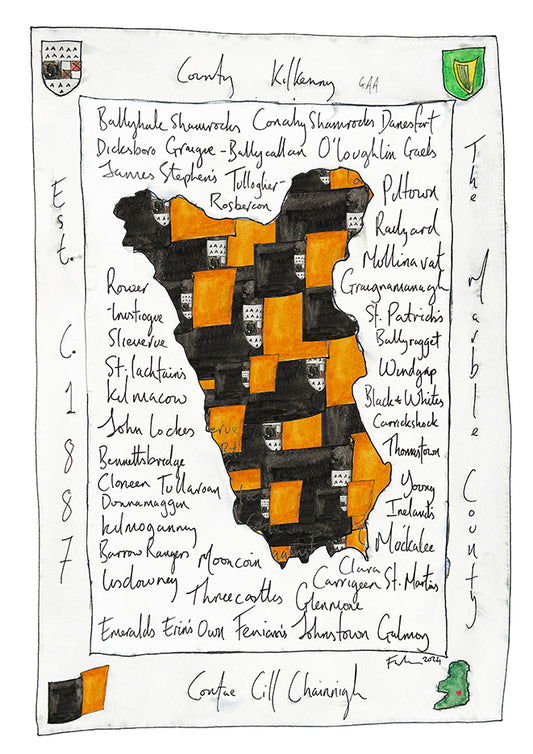 County Kilkenny GAA
Ballyhale Shamrocks Conahy Shamrocks Danesfort
Dicksboro Graigue-Ballycallan O'Loughlin Gaels
James Stephen's Tullogher-
Rosbercon
Est. C. 1887
The Marble County
Rower
-Inistioge
Slieverue
St. Lachtain's
Kilmacow
John Lockes
Bennettsbridge
Cloneen Tullaroan
Dunnamaggin
Kilmoganny
Barrow Rangers Mooncoin
Lisdowney Threecastles
Piltown
Railyard
Mullinavat
Graignamanagh
St. Patrick's
Ballyragget
Windgap
Black & Whites
Carrickshock
Thomastown
Young
Ireland's
Mockalee
Clara
Carrigeen St. Martins
Glenmore
Emeralds Erin's Own Fenian's Johnstown Galmoy
2024
Contae Cill Chainnigh